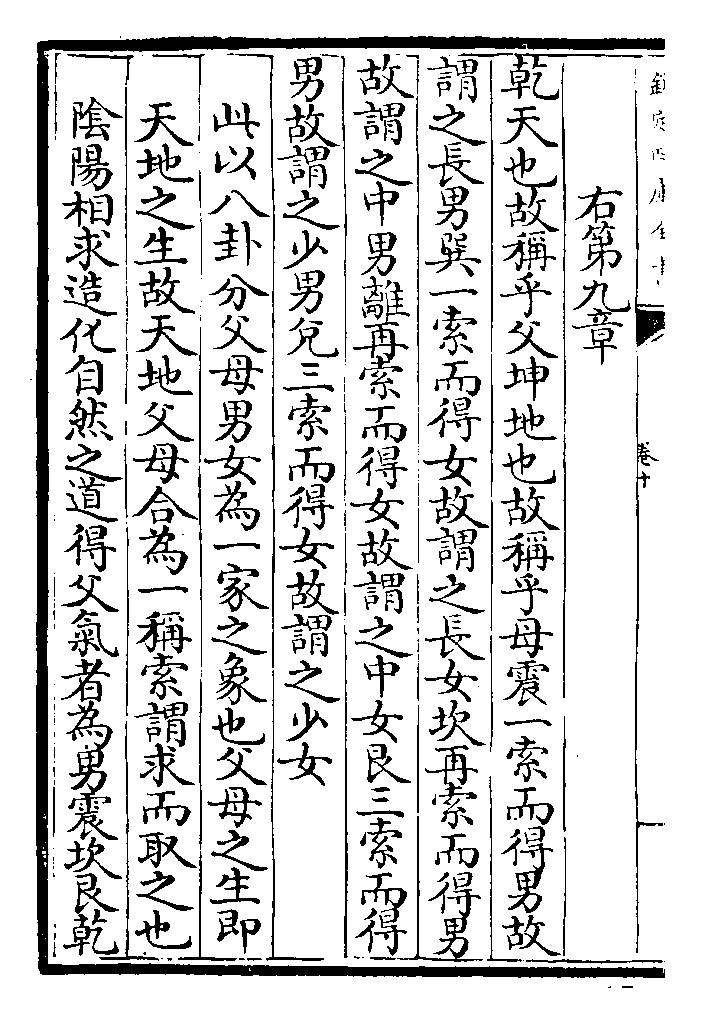 欽定四庫全書
卷十
右第九章
乾天也故稱乎父坤地也故稱乎母震一索而得男故
謂之長男巽一索而得女故謂之長女坎再索而得男
故謂之中男離再索而得女故謂之中女艮三索而得
男故謂之少男兌三索而得女故謂之少女
此以八卦分父母男女為一家之象也父母之生即
天地之生故天地父母合為一稱索謂求而取之也
陰陽相求造化自然之道得父氣者為男震坎艮乾